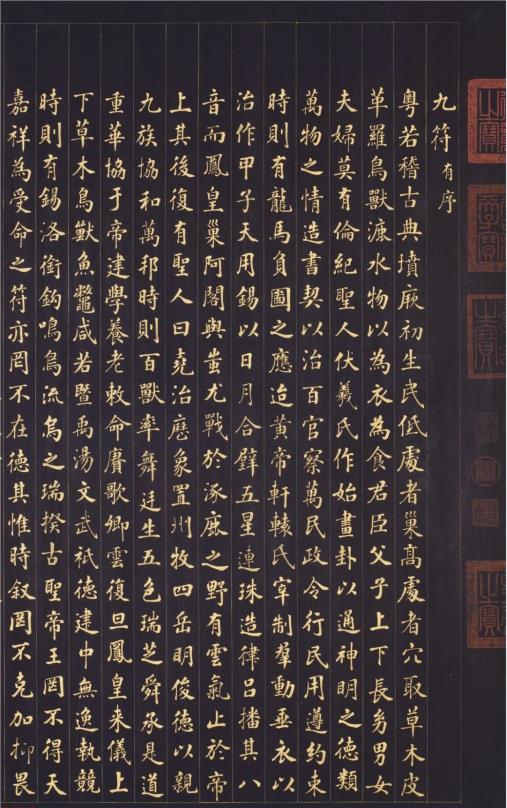 九符有序
粵若稽古典墳厥初生民低處者巢高處者穴取草木皮
革羅鳥獸漉水物以為衣為食君臣父子上下長幼男女
夫婦莫有倫紀聖人伏羲氏作始畫卦以通神明之德類
萬物之情造書契以治百官察萬民政令行民用遵約束
時則有龍馬負圖之應迨黃帝軒轅氏宰制羣動垂衣以
治作甲子天用錫以日月合璧五星連珠造律呂播其八
音而鳳皇巢阿閣與蚩尤戰於涿鹿之野有雲氣止於帝
上其後復有聖人曰堯治曆象置州牧四岳明俊德以親
九族協和萬邦時則百獸率舞廷生五色瑞芝舜承是道
重華協于帝建學養老敕命賡歌卿雲復旦鳳皇来儀上
下草木鳥獸魚鼈咸若暨禹湯文武祗德建中無逸執競
時則有錫洛銜鈎鳴鳥流烏之瑞揆古聖帝王罔不得天
嘉祥為受命之符亦罔不在德其惟時叙罔不克加抑畏